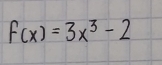 f(x) = 3x³ - 2